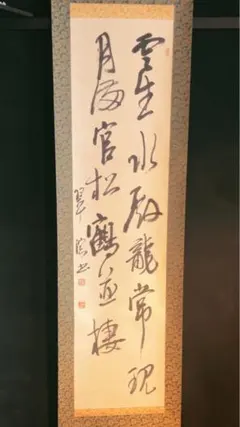 雲生水殿龍常現
月満宮松鶴並棲